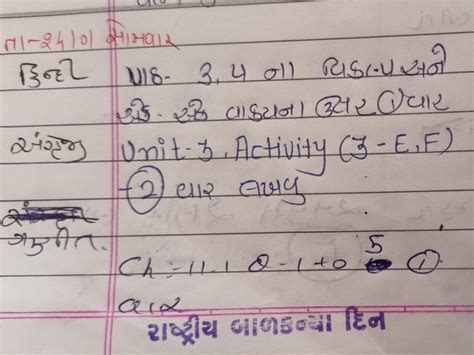 તા-૨૪/૦૧ સોમવાર
હિન્દી પાઠ- ૩,૪ ના વિકલ્પ અને
એક-એક વાક્યના ઉત્તર ① વાર
અંગ્રેજી Unit-3, Activity (3-E,F)
② વાર લખવું
ગણિત.
Ch-:-11.1 Q-1 to 5 ①
વાર
રાષ્ટ્રીય બાળકન્યા દિન